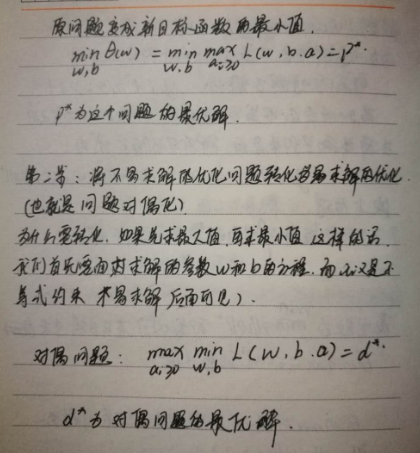 原问题变成新目标函数的最小值.
min θ(w) = min max L(w,b.a) = p*.
w,b w.b aᵢ≥0
p*为这个问题的最优解.
第二步:将不易求解的优化问题转化为易求解的优化
(也就是问题对偶化)
为什么要转化.如果先求最大值,再求最小值.这样的话.
我们首先要面对求解的参数w和b的方程.而αᵢ又是不
等式约束 不易求解(后面可见).
对偶问题: max min L(w,b.a) = d*.
aᵢ≥0 w,b
d*为对偶问题的最优解.